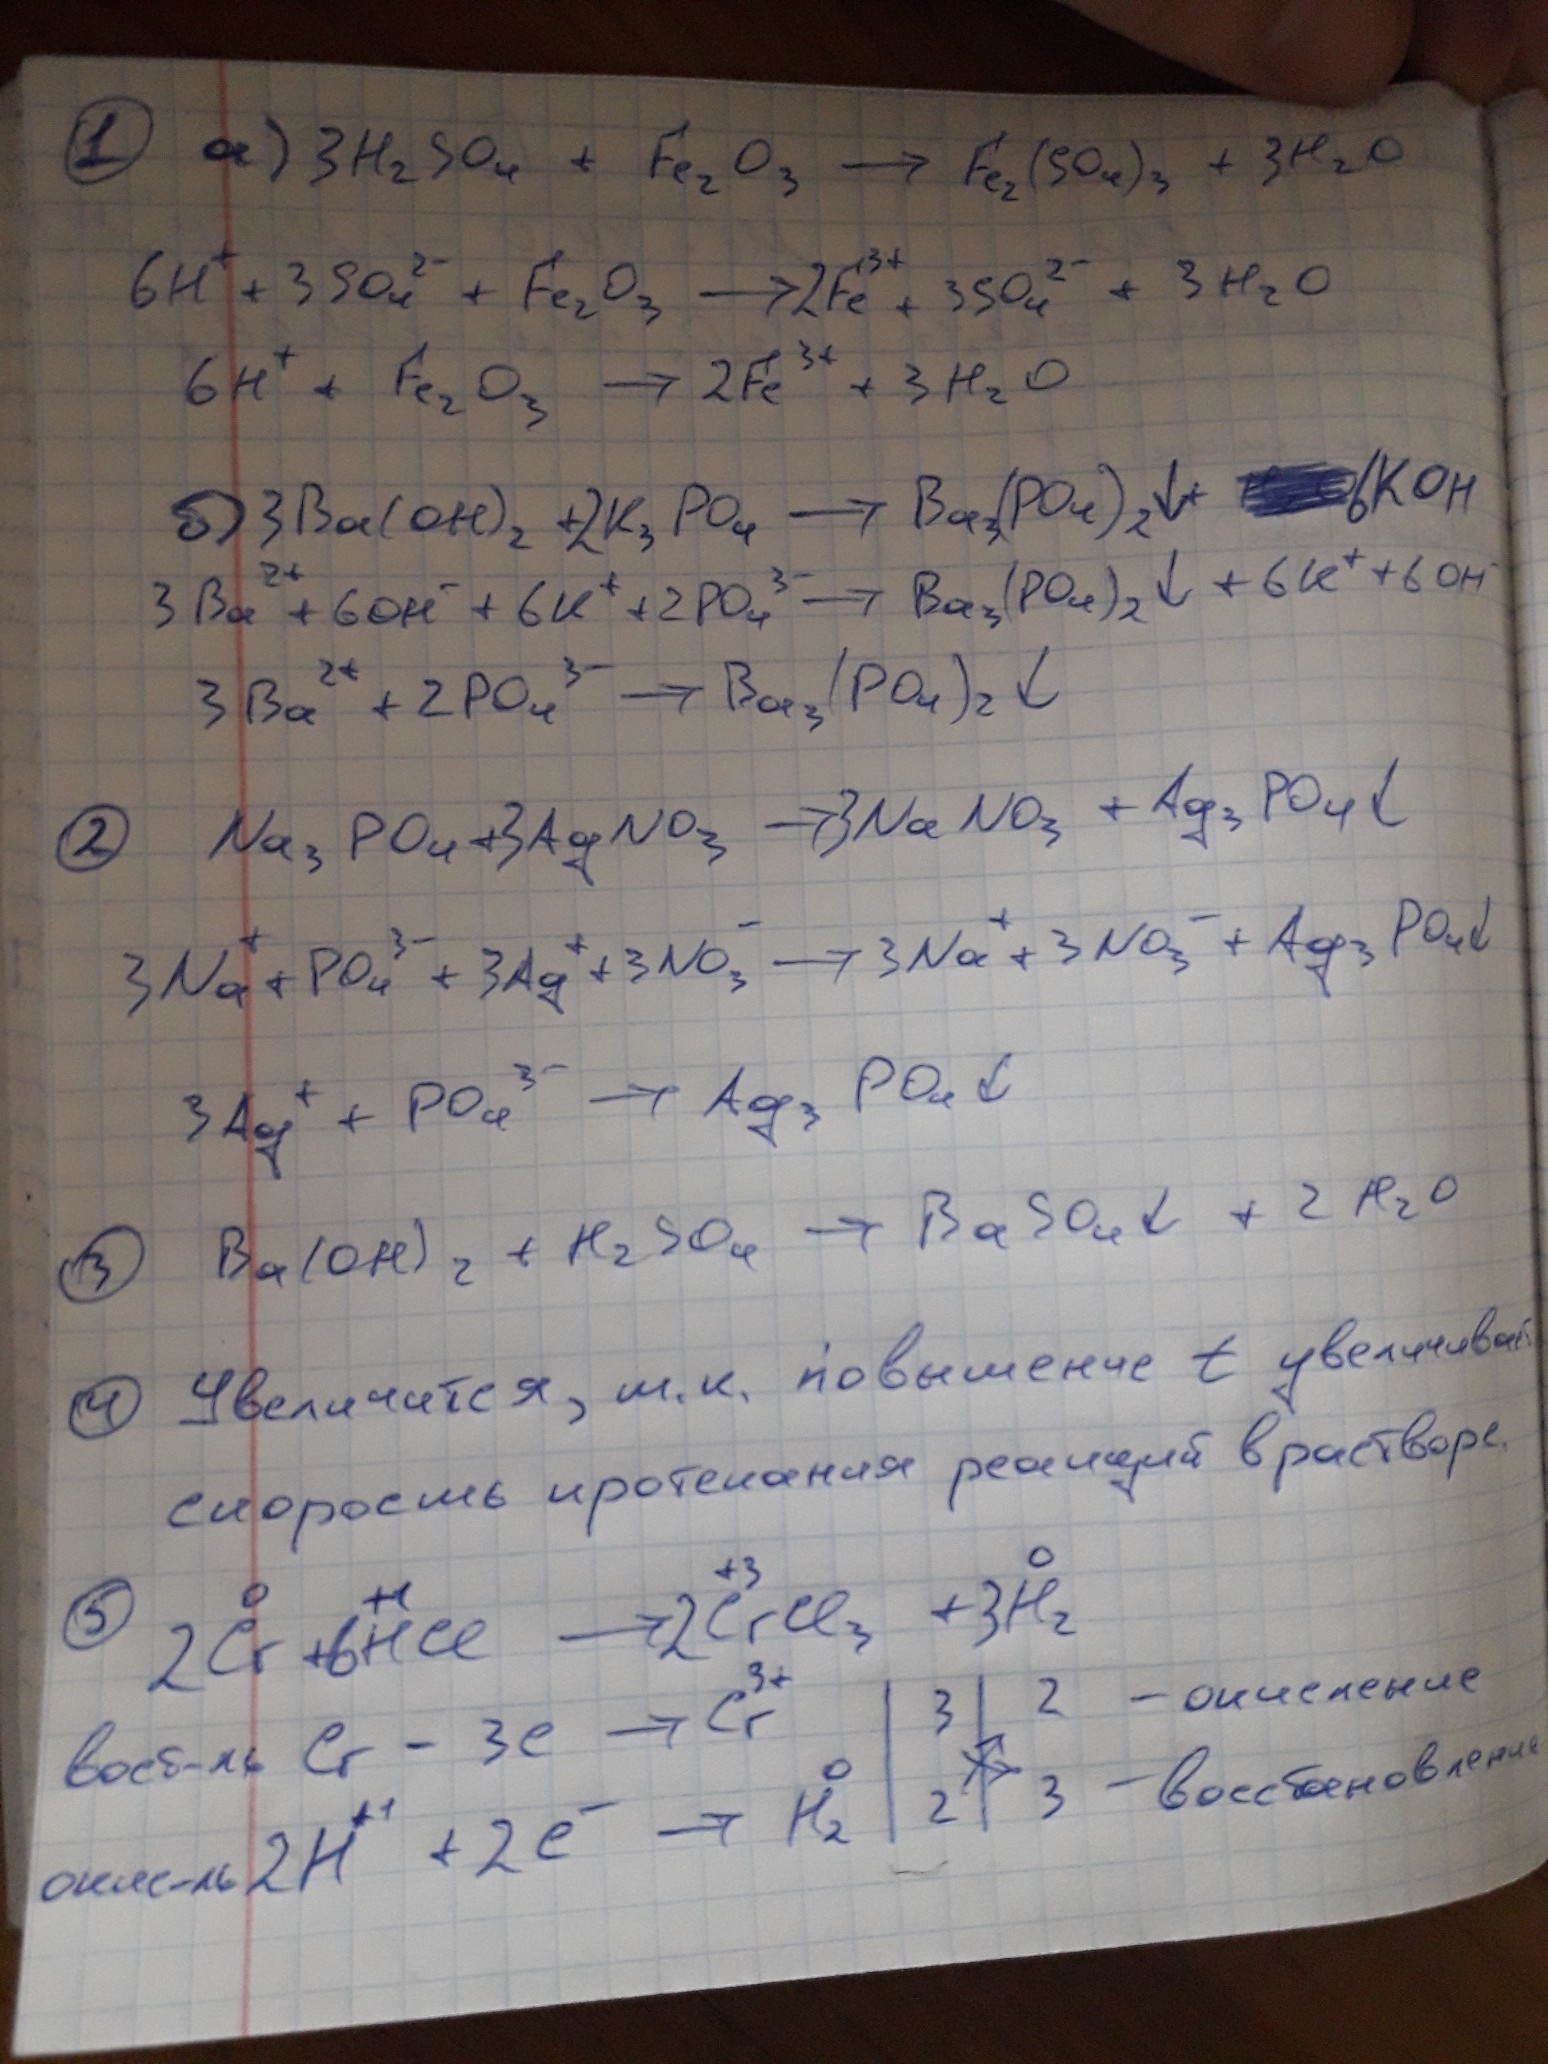 1 а) 3H₂SO₄ + Fe₂O₃ → Fe₂(SO₄)₃ + 3H₂O
6H⁺ + 3SO₄²⁻ + Fe₂O₃ → 2Fe³⁺ + 3SO₄²⁻ + 3H₂O
6H⁺ + Fe₂O₃ → 2Fe³⁺ + 3H₂O
б) 3Ba(OH)₂ + 2K₃PO₄ → Ba₃(PO₄)₂↓ + 6KOH
3Ba²⁺ + 6OH⁻ + 6K⁺ + 2PO₄³⁻ → Ba₃(PO₄)₂↓ + 6K⁺ + 6OH⁻
3Ba²⁺ + 2PO₄³⁻ → Ba₃(PO₄)₂↓
2 Na₃PO₄ + 3AgNO₃ → 3NaNO₃ + Ag₃PO₄↓
3Na⁺ + PO₄³⁻ + 3Ag⁺ + 3NO₃⁻ → 3Na⁺ + 3NO₃⁻ + Ag₃PO₄↓
3Ag⁺ + PO₄³⁻ → Ag₃PO₄↓
3 Ba(OH)₂ + H₂SO₄ → BaSO₄↓ + 2H₂O
4 Увеличится, т.к. повышение t увеличивает
скорость протекания реакций в растворе.
5 2Cr⁰ + 6H⁺¹Cl → 2Cr⁺³Cl₃ + 3H₂⁰
вост-ль Cr - 3e → Cr³⁺ | 3 | 2 - окисление
окис-ль 2H⁺¹ + 2e⁻ → H₂⁰ | 2 | 3 - восстановление